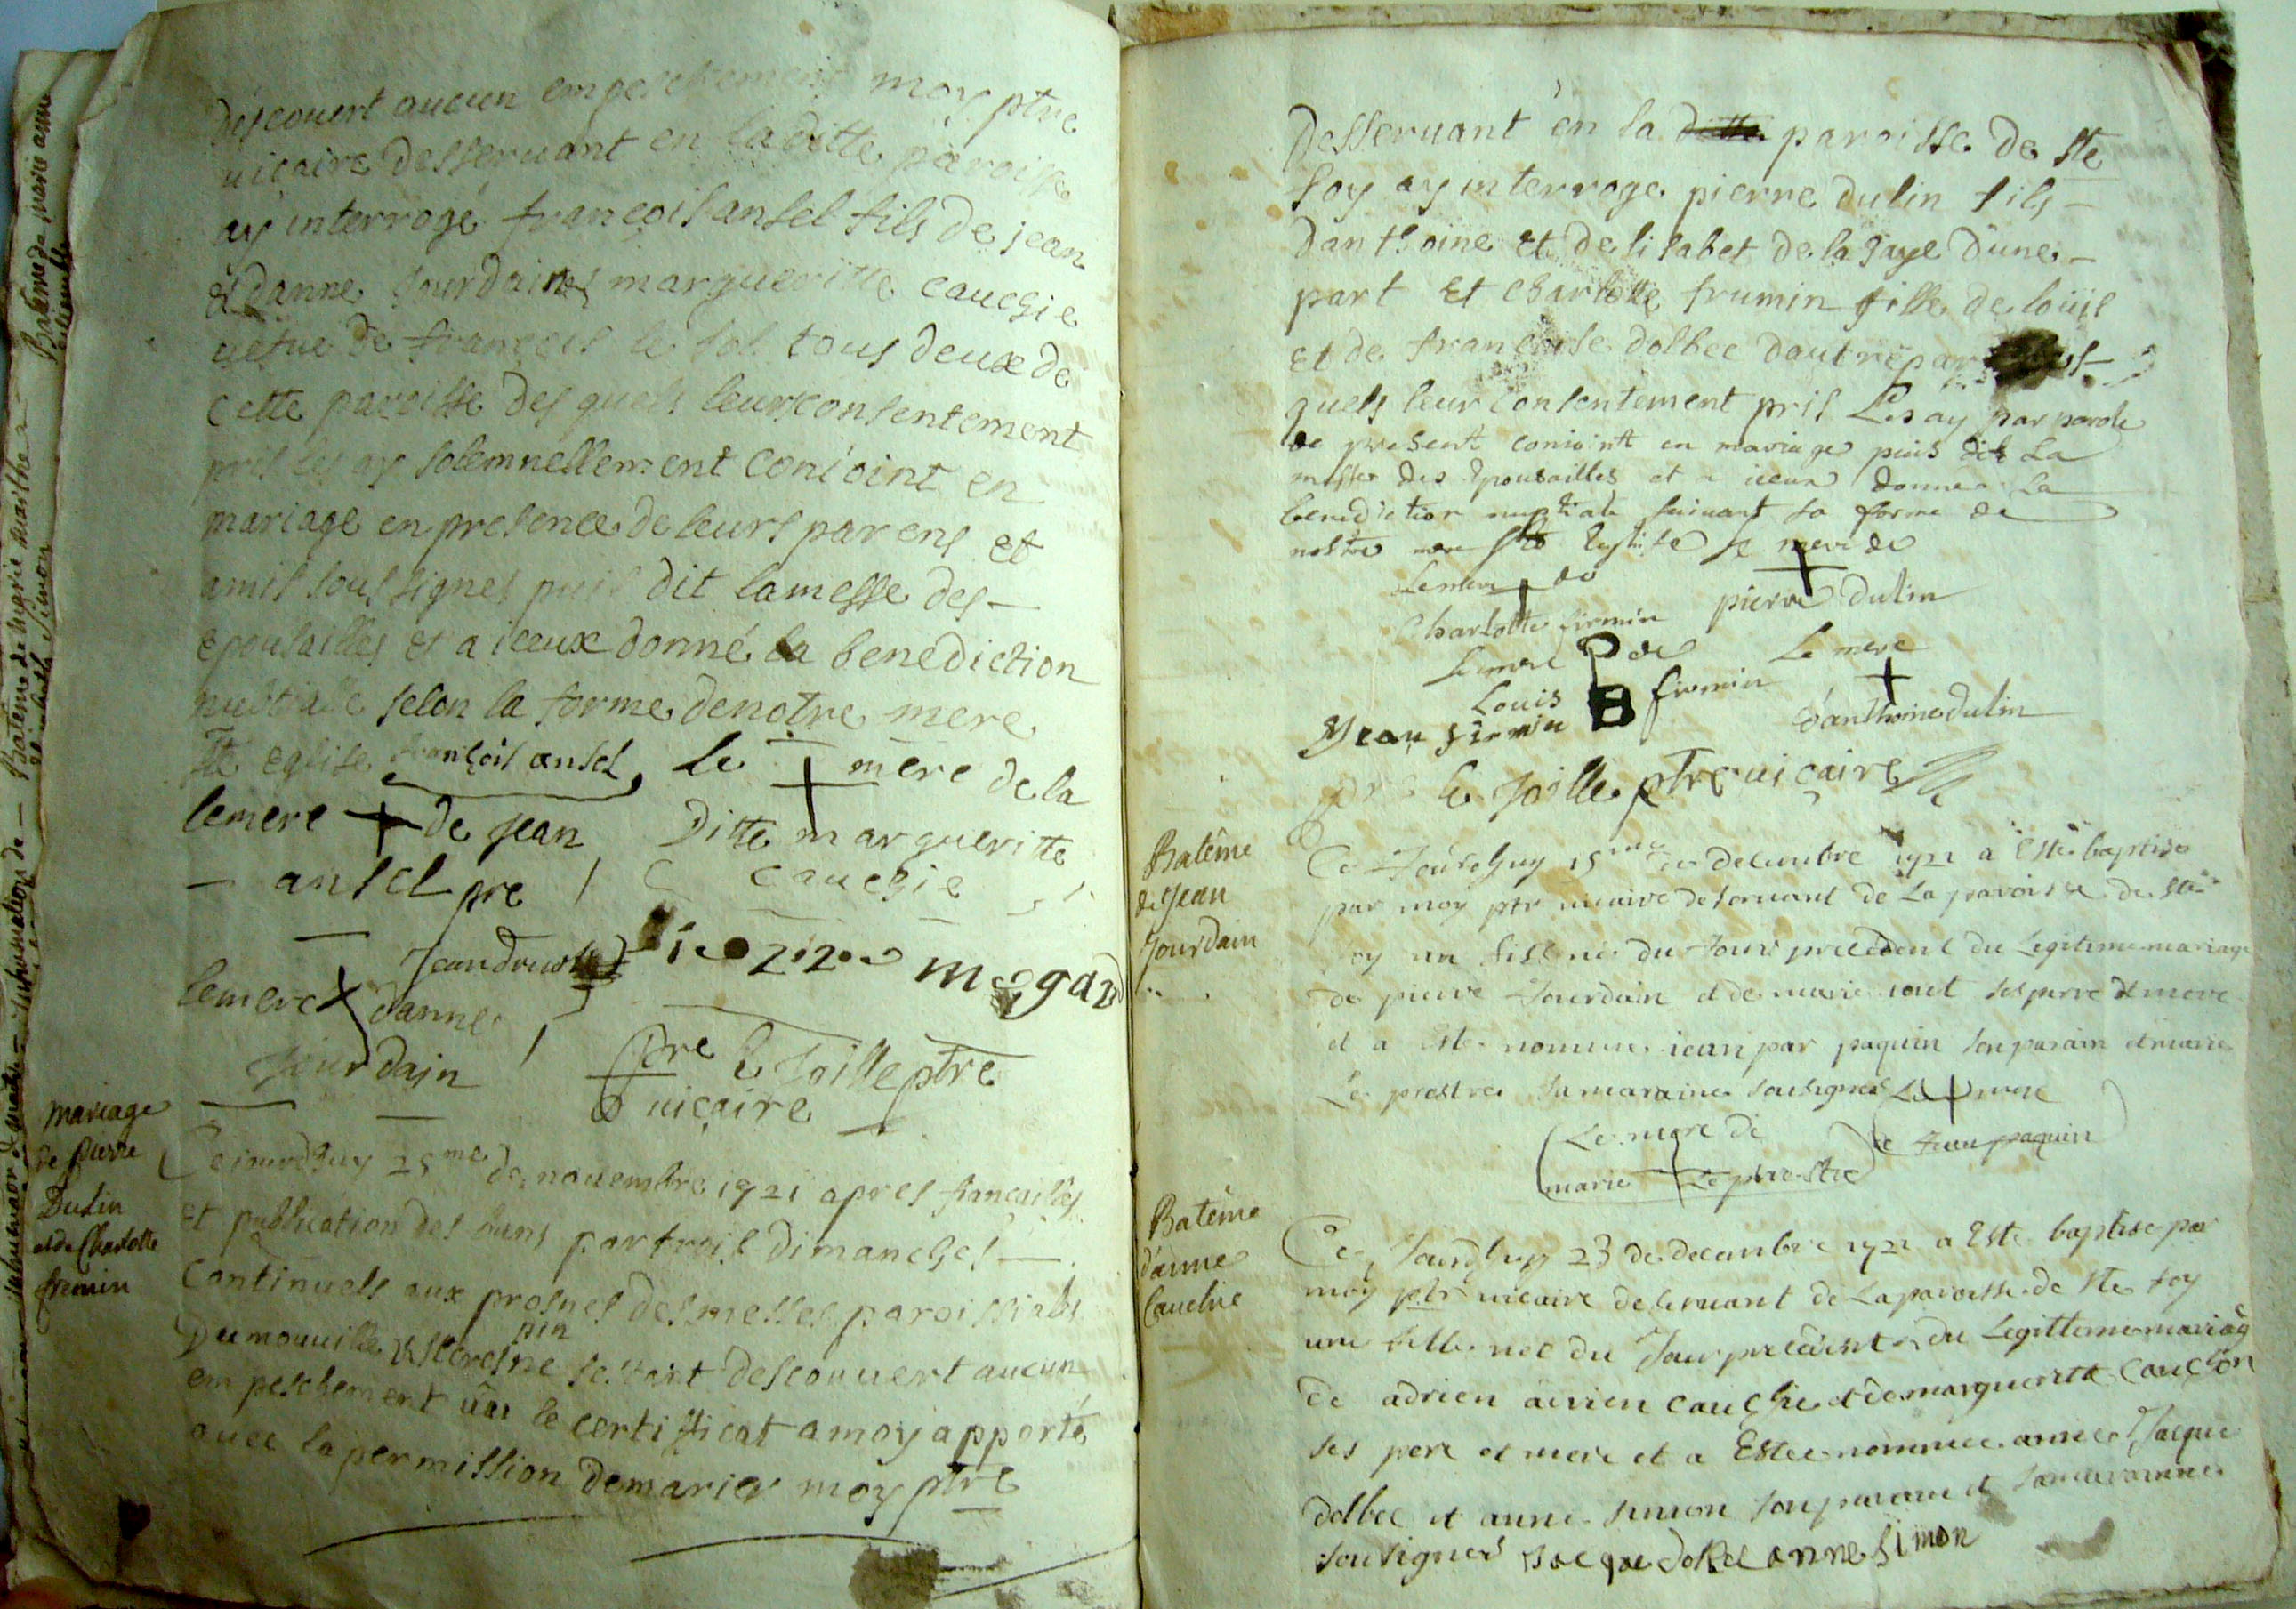 descouvert aucun empeschement moy ptre
uicaire desseruant en laditte paroisse
ay interrogé francois ansel fils de jean
et danne jourdain et margueritte cauchie
uefue de francois le tous deux de
cette paroisse desquels leurs consentement
pris les ay solemnellement conioint en
mariage en presence de leurs parens et
amis soussignes puis dit lamesse des
epousailles et a iceux donné la benediction
nubtialle selon la forme denotre mere
ste eglise francois ansel, le mere de la
lemere de jean Ditte margueritte
ansel pre cauchie
lemere danne
jourdain pre le ptre
uicaire
mariage
de pierre
Dulin
et de Charlotte
fremin
Ce iourdhuy 25me de nouembre 1721 apres fiancailles
et publication des bans par trois dimanches
continuels aux prosnes des messes paroissiales
sestant descouuert aucun
empeschement le certifficat a moy apporté
auec la permission demarier moy ptre
Desseruant en la paroisse de ste
foy ay interroge pierre dulin fils
danthoine et delisabet de la haye dune
part et charlotte frumin fille de louis
et de francoise dolbec dautre par
quels leur consentement pris Les ay par parole
de present conioint en mariage puis dit La
messe des Epousailles et a iceux donner La
benediction nuptiale suiuant La forme de
nostre mere ste Eglise le merc de
Le merc de pierre dulin
Charlotte firmin
le merc de Le merc
Louis firmin
Jean firmin d'anthoine dulin
pre le ptre uicaire
Batême
de Jean
Jourdain
Ce Jourdhuy 15me de decembre 1721 a Esté baptisé
par moy ptr uicaire deseruant de La paroisse de ste
foy un fils né du Jour precedent du Legitime mariage
de pierre Jourdain et de marie ses perre et mere
et a esté nommé iean par paquin son parain et marie
Le prestre sa maraine sousignes Le merc
Le merc de de Jean paquin
marie Le prestre
Batême
d'anne
Cauchie
Ce Jourdhuy 23 de decembre 1721 a Esté baptisé par
moy ptr uicaire deseruant de La paroisse de ste foy
une fille née du Jour precedent du Legittime mariag
de adrien cauchie et de margueritte Cauchon
ses pere et mere et a Esté nommée anne Jacque
dolbec et anne simon son parain et sa maraine
sousignés Jacque dolbec anne simon